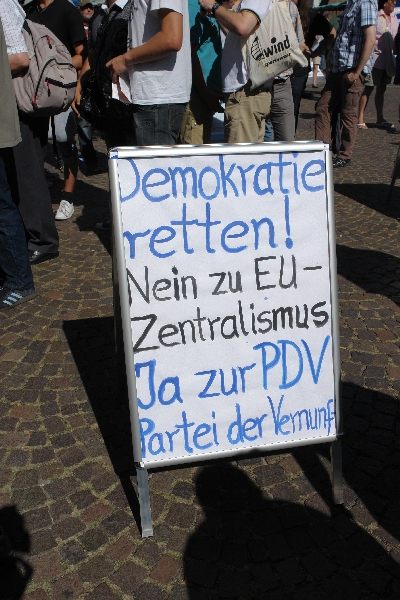 wind
Demokratie
retten!
Nein zu EU-
Zentralismus
Ja zur PDV
Partei der Vernunf